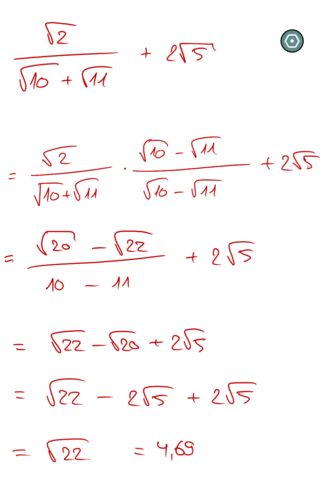 √2 / (√10 + √11) + 2√5
= √2 / (√10+√11) · (√10 − √11) / (√10 − √11) + 2√5
= (√20 − √22) / (10 − 11) + 2√5
= √22 − √20 + 2√5
= √22 − 2√5 + 2√5
= √22 = 4,69